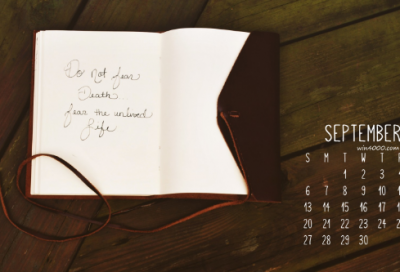 Do Not fear
Death
fear the unlived
Life
SEPTEMBER
win4000.com
S M T W T
1 2 3
6 7 8 9 10
13 14 15 16 17
20 21 22 23 24
27 28 29 30